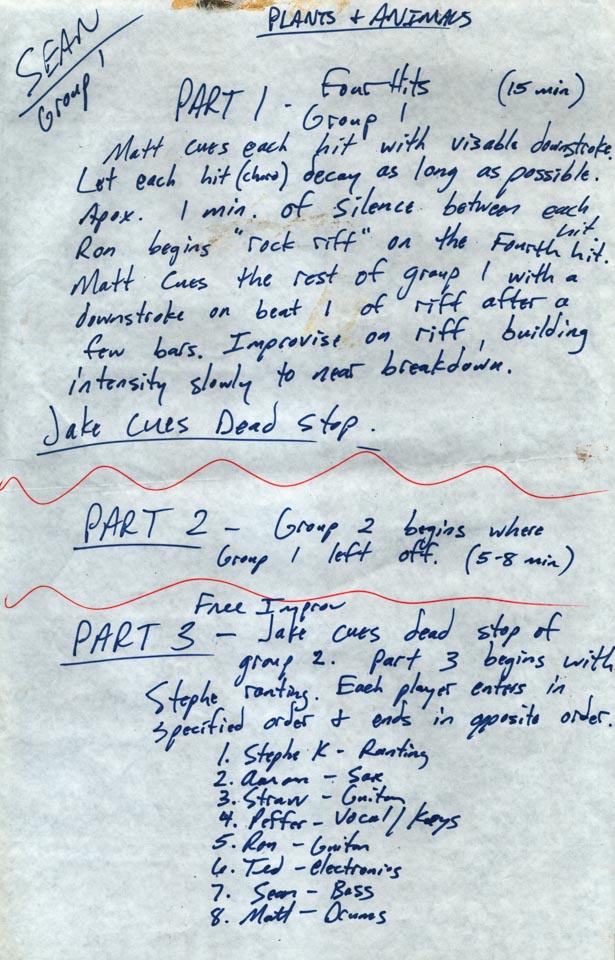 PLANTS + ANIMALS
SEAN
Group 1
PART 1 - Four Hits (15 min)
Group 1
Matt cues each hit with visable downstroke.
Let each hit (chord) decay as long as possible.
Apox. 1 min. of silence between each hit
Ron begins "rock riff" on the Fourth hit.
Matt cues the rest of group 1 with a
downstroke on beat 1 of riff after a
few bars. Improvise on riff, building
intensity slowly to near breakdown.
Jake cues Dead stop.
PART 2 - Group 2 begins where
Group 1 left off. (5-8 min)
Free Improv
PART 3 - Jake cues dead stop of
group 2. Part 3 begins with
Stephe ranting. Each player enters in
specified order & ends in opposite order.
1. Stephe K - Ranting
2. Aaron - Sax
3. Straw - Guitar
4. Peffer - Vocal / Keys
5. Ron - Guitar
6. Ted - electronics
7. Sean - Bass
8. Matt - Drums